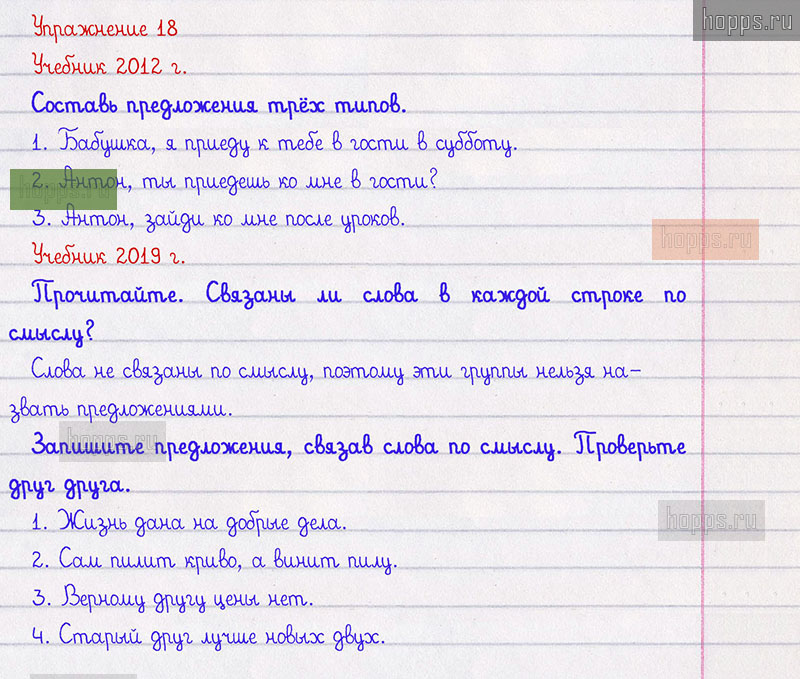 hopps.ru
Упражнение 18
Учебник 2012 г.
Составь предложения трёх типов.
1. Бабушка, я приеду к тебе в гости в субботу.
2. Антон, ты приедешь ко мне в гости?
hopps.ru
3. Антон, зайди ко мне после уроков.
hopps.ru
Учебник 2019 г.
Прочитайте. Связаны ли слова в каждой строке по
смыслу?
Слова не связаны по смыслу, поэтому эти группы нельзя на-
звать предложениями.
hopps.ru
Запишите предложения, связав слова по смыслу. Проверьте
друг друга.
hopps.ru
1. Жизнь дана на добрые дела.
2. Сам пилит криво, а винит пилу.
3. Верному другу цены нет.
4. Старый друг лучше новых двух.